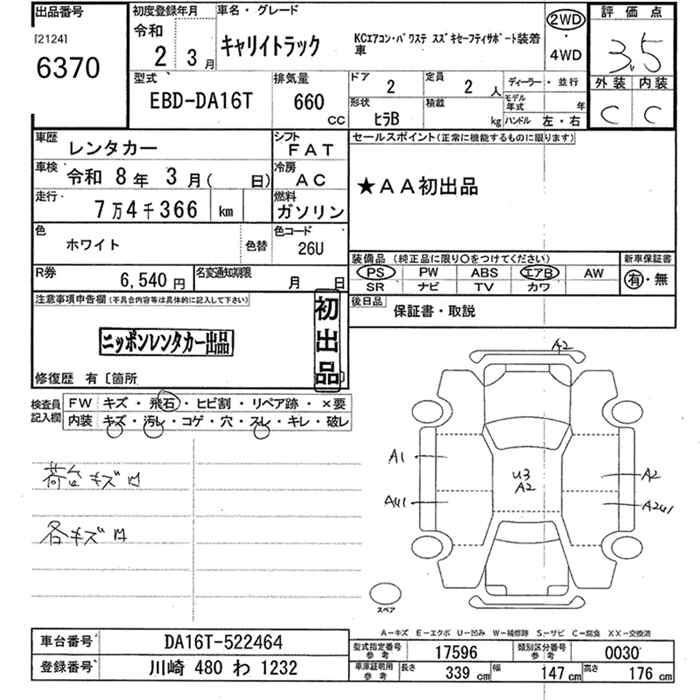 出品番号
[2124]
6370
初度登録年月
令和
2年 3月
車名・グレード
キャリイトラック
KCエアコン・パワステ スズキセーフティサポート装着車
2WD
4WD
評価点
3.5
外装 内装
C C
型式
EBD-DA16T
排気量
660
cc
ドア
2
定員
2人
ディーラー・並行
形状
ヒラB
積載
kg
モデル年式
年
ハンドル 左・右
車歴
レンタカー
シフト
FAT
車検
令和 8年 3月( 日)
冷房
AC
走行
7万4千366 km
燃料
ガソリン
色
ホワイト
色替
色コード
26U
R券
6,540円
名変通知期限
月 日
セールスポイント(正常に機能するものに限ります)
★AA初出品
装備品(純正品に限り○をつけてください)
PS PW ABS エアB AW
SR ナビ TV カワ
新車保証書
有・無
後日品
保証書・取説
注意事項申告欄(不具合内容等は具体的に記入して下さい)
ニッポンレンタカー出品
初出品
修復歴 有〔箇所
検査員記入欄
FW キズ・飛石・ヒビ割・リペア跡・×要
内装 キズ・汚レ・コゲ・穴・スレ・キレ・破レ
荷台キズ凹
各キズ凹
A2
A1
U3
A2
A2
AU1
A2U1
スペア
A-キズ E-エクボ U-凹み W-補修跡 S-サビ C-腐食 XX-交換済
車台番号
DA16T-522464
登録番号
川崎 480 わ 1232
型式指定番号
参考
17596
類別区分番号
参考
0030
車庫証明用
参考
長さ 339cm 幅 147cm 高さ 176cm